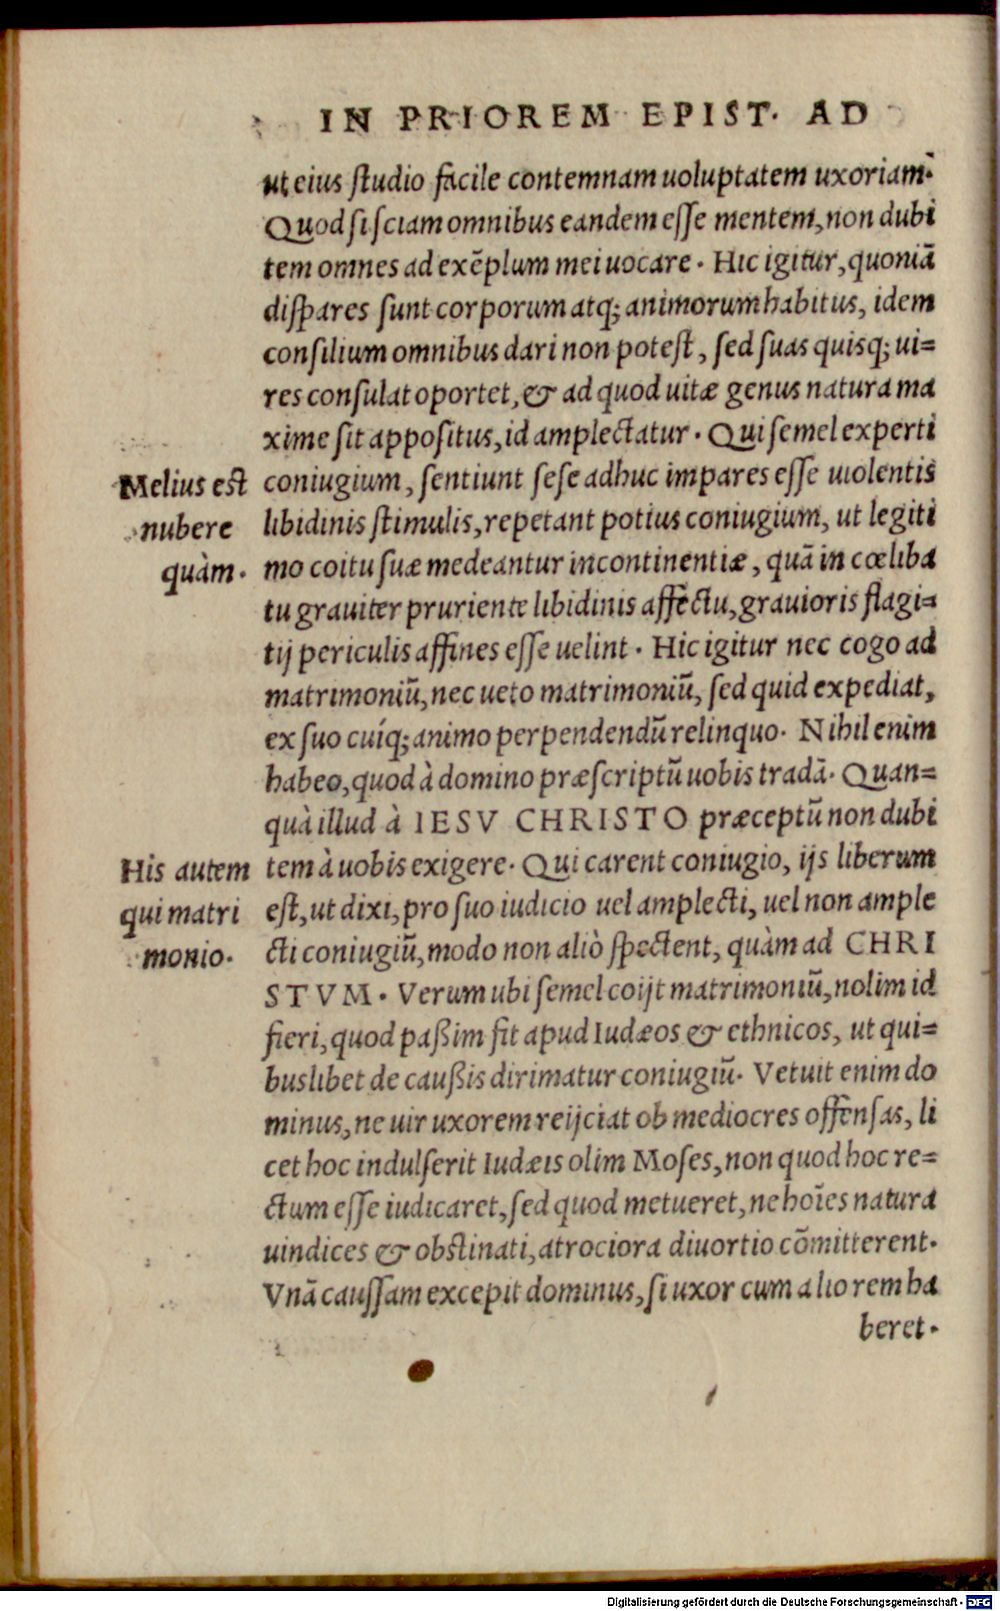 IN PRIOREM EPIST. AD
ut eius studio facile contemnam uoluptatem uxoriam.
Quod si sciam omnibus eandem esse mentem, non dubi
tem omnes ad exẽplum mei uocare. Hic igitur, quoniã
dispares sunt corporum atq; animorum habitus, idem
consilium omnibus dari non potest, sed suas quisq; ui=
res consulat oportet, & ad quod uitæ genus natura ma
xime sit appositus, id amplectatur. Qui semel experti
Melius est
nubere
quàm.
coniugium, sentiunt sese adhuc impares esse uiolentis
libidinis stimulis, repetant potius coniugium, ut legiti
mo coitu suæ medeantur incontinentiæ, quã in cœliba
tu grauiter pruriente libidinis affectu, grauioris flagi=
tij periculis affines esse uelint. Hic igitur nec cogo ad
matrimoniũ, nec ueto matrimoniũ, sed quid expediat,
ex suo cuíq; animo perpendendũ relinquo. Nihil enim
habeo, quod à domino præscriptũ uobis tradã. Quan=
quà illud à IESV CHRISTO præceptũ non dubi
His autem
qui matri
monio.
tem à uobis exigere. Qui carent coniugio, ijs liberum
est, ut dixi, pro suo iudicio uel amplecti, uel non ample
cti coniugiũ, modo non aliò spectent, quàm ad CHRI
STVM. Verum ubi semel coijt matrimoniũ, nolim id
fieri, quod paßim fit apud Iudæos & ethnicos, ut qui=
buslibet de caußis dirimatur coniugiũ. Vetuit enim do
minus, ne uir uxorem reijciat ob mediocres offensas, li
cet hoc indulserit Iudæis olim Moses, non quod hoc re=
ctum esse iudicaret, sed quod metueret, ne hoĩes natura
uindices & obstinati, atrociora diuortio cõmitterent.
Vnã caussam excepit dominus, si uxor cum alio rem ha
beret.
Digitalisierung gefördert durch die Deutsche Forschungsgemeinschaft - DFG